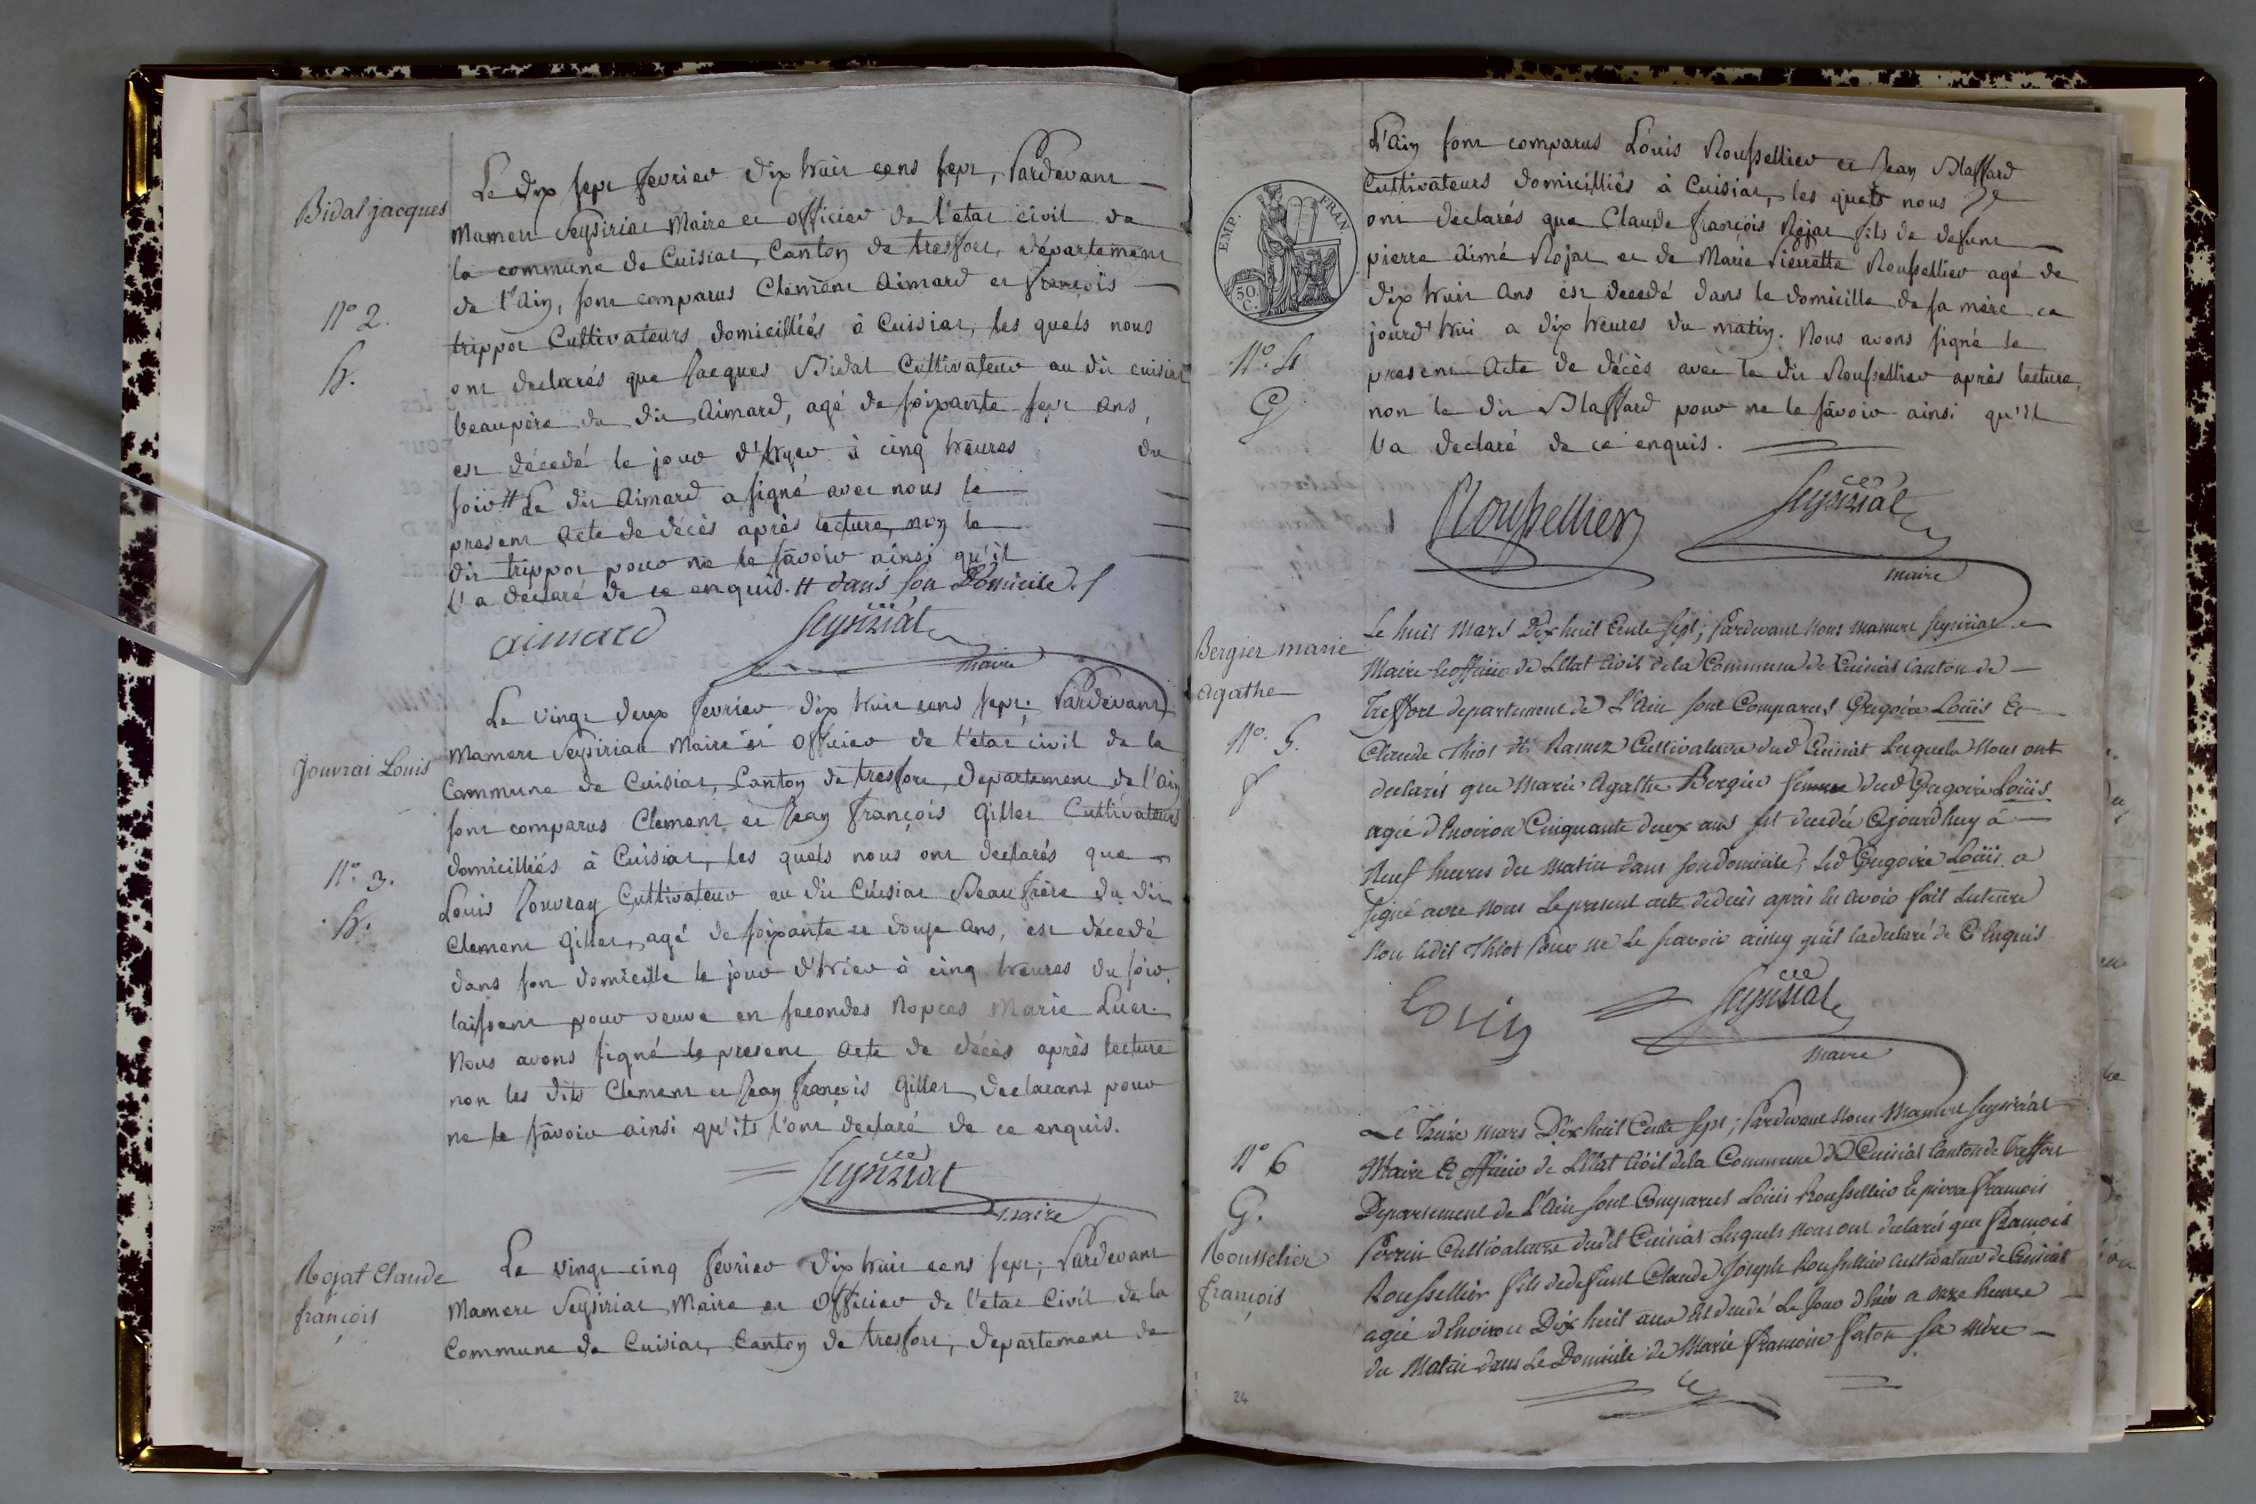 Bidal jacques
N° 2.
h.
Le dix sept fevrier dix huit cens sept, Pardevant
Mamert Seysiriat Maire et officier de l'etat civil de
la commune de Cuisiat, Canton de tresfort, département
de l'Ain, sont comparus Clement Aimard et françois
trippoz Cultivateurs domiciliés à Cuisiat, les quels nous
ont declarés que Jacques Bidat Cultivateur au dit cuisiat
beaupère du dit Aimard, agé de soixante sept ans,
est décédé le jour d'hyer à cinq heures du
soir # Le dit Aimard a signé avec nous le
present Acte de décès après lecture, non le
dit trippoz pour ne le sâvoir ainsi qu'il
l'a declaré de ce enquis. # dans son Domicile. /
aimard Seysiriat
maire
Jouvrai Louis
N° 3.
h.
Le vingt deux fevrier dix huit cens sept; Pardevant
Mamert Seysiriat Maire et officier de l'etat civil de la
Commune de Cuisiat, Canton de tresfort, departement de l'Ain
sont comparus Clement et Jean françois Gillet Cultivateurs
domicilliés à Cuisiat, les quels nous ont declarés que
Louis Jouvray Cultivateur au dit Cuisiat Beau frère du dit
Clement Gillet, agé de soixante et douze ans, est décedé
dans son domicille le jour d'hier à cinq heures du soir,
laissant pour veuve en secondes Nopces Marie Luer.
Nous avons signé le present Acte de décès après lecture
non les dits Clement et Jean françois Gillet declarans pour
ne le sâvoir ainsi qu'ils l'ont declaré de ce enquis.
Seysiriat
maire
Rojat Claude
françois
Le vingt cinq fevrier dix huit cens sept; Pardevant
Mamert Seysiriat Maire et Officier de l'etat Civil de la
Commune de Cuisiat, Canton de tresfort, departement de
EMP. FRAN.
50 C.
N° 4
G
L'Ain sont comparus Louis Roussellier et Jean Blaffard
Cultivateurs domicilliés à Cuisiat, les quels nous
ont declarés que Claude françois Rojat fils de defunt
pierre Aimé Rojat et de Marie Pierrette Rousellier agé de
dix huit Ans est decedé dans le domicille de sa mère ce
jourd'hui a dix heures du matin. Nous avons signé le
present Acte de décès avec le dit Rousellier après lecture,
non le dit Blaffard pour ne le sâvoir ainsi qu'il
l'a declaré de ce enquis.
Rousellier Seysiriat
maire
Bergier marie
agathe
N° 5.
Le huit Mars Dix huit Cents sept; Pardevant Nous Mamert Seysiriat
Maire et officier de L'Etat Civil de la Commune de Cuisiat Canton de
Treffort departement de L'Ain sont Comparus Grégoire Louis Et
Claude Thiot Cultivateurs dud Cuisiat Lesquels Nous ont
declarés que Marie Agathe Bergier femme dud Gregoire Louis
agée d'Environ Cinquante deux ans Est decedée Cejourdhuy à
Neuf heures du Matin dans son domicile; Led Gregoire Louis a
signé avec Nous Le present acte de deces après lui avoir fait Lecture
Non ledit Thiot pour ne Le scavoir ainsy qu'il la declaré de Ce Enquis
Louis Seysiriat
maire
N° 6
G.
Rousselier
françois
Le Treize mars Dix huit Cents Sept; Pardevant Nous Mamert Seysiriat
Maire Et officier de L'Etat Civil de la Commune de Cuisiat Canton de Treffort
Departement de L'Ain sont Comparus Louis Rousellier Et pierre francois
Perrin Cultivateurs dudit Cuisiat Lesquels Nous ont declarés que francois
Rousellier fils de defunt Claude Joseph Rousellier Cultivateur de Cuisiat
agée d'Environ Dix huit ans Est decedé Le Jour d'hier a onze heures
du Matin dans Le Domicile de Marie francoise sa mère
24